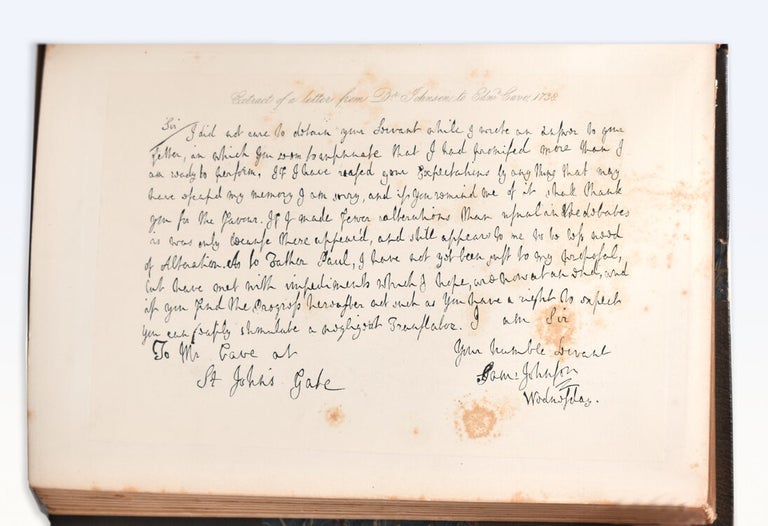 Extract of a letter from Dr. Johnson to Edwd. Cave, 1738.
Sir I did not care to detain your Servant while I wrote an answer to your
Letter, in which you seem to insinuate that I had promised more than I
am ready to perform. If I have raised your Expectations by any thing that may
have escap'd my memory I am sorry, and if you remind me of it shall thank
you for the favour. If I made fewer alterations than usual in the debates
it was only because there appear'd, and still appears to me to be less need
of Alteration. As to Father Paul, I have not yet been just to my proposal,
but have met with impediments which I hope, are now at an End, and
if you find the Progress hereafter not such as you have a right to expect
you can easily stimulate a negligent Translator. I am Sir
To Mr. Cave at
St. John's Gate
Your humble Servant
Sam: Johnson
Wednesday.